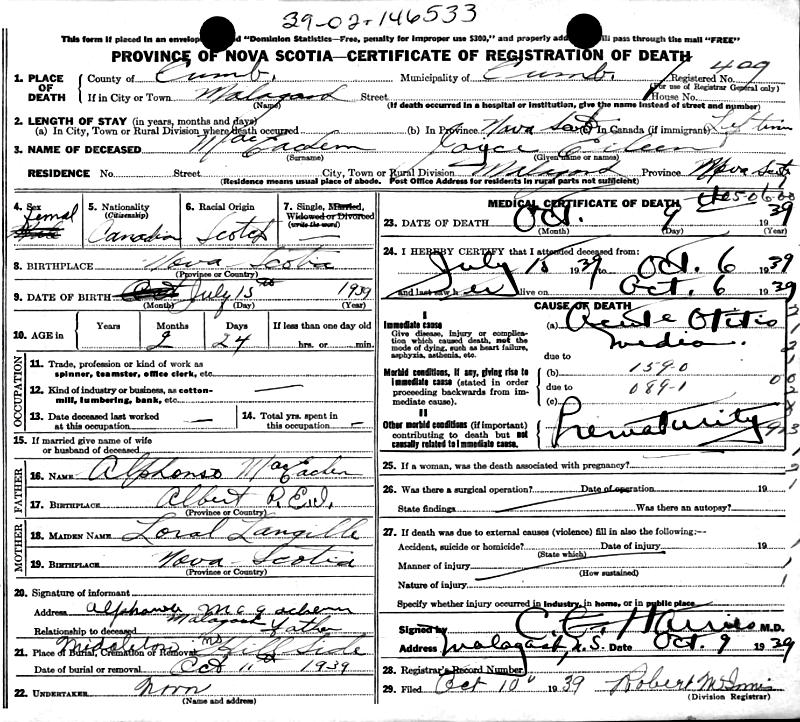 39-02-146533
This form if placed in an envelope and marked "Dominion Statistics—Free, penalty for improper use $300," and properly addressed will pass through the mail "FREE"
PROVINCE OF NOVA SCOTIA—CERTIFICATE OF REGISTRATION OF DEATH
1. PLACE OF DEATH County of Cumb. Municipality of Cumb. Registered No. 409
(For use of Registrar General only)
If in City or Town Malagash Street House No.
(Name) (If death occurred in a hospital or institution, give the name instead of street and number)
2. LENGTH OF STAY (in years, months and days)
(a) In City, Town or Rural Division where death occurred (b) In Province Nova Scotia (c) In Canada (if immigrant) Life time
3. NAME OF DECEASED MacEachern Joyce Eileen
(Surname) (Given name or names)
RESIDENCE No. Street City, Town or Rural Division Malagash Province Nova Scotia
(Residence means usual place of abode. Post Office Address for residents in rural parts not sufficient)
4. Sex Femal
5. Nationality (Citizenship) Canadian
6. Racial Origin Scotch
7. Single, Married, Widowed or Divorced (write the word)
8. BIRTHPLACE Nova Scotia
(Province or Country)
9. DATE OF BIRTH Oct July 15th 1939
(Month) (Day) (Year)
10. AGE in Years Months Days If less than one day old
2 24 hrs. or min.
OCCUPATION
11. Trade, profession or kind of work as spinner, teamster, office clerk, etc.
12. Kind of industry or business, as cotton-mill, lumbering, bank, etc.
13. Date deceased last worked at this occupation
14. Total yrs. spent in this occupation
15. If married give name of wife or husband of deceased
FATHER
16. NAME Alphonso MacEachern
17. BIRTHPLACE Albert P.E.I.
(Province or Country)
MOTHER
18. MAIDEN NAME Loral Langille
19. BIRTHPLACE Nova Scotia
(Province or Country)
20. Signature of informant
Address Alphonso McEachern
Malagash
Relationship to deceased Father
21. Place of Burial, Cremation or Removal Hill Side
Date of burial or removal Oct 11th 1939
22. UNDERTAKER Noon
(Name and address)
MEDICAL CERTIFICATE OF DEATH
23. DATE OF DEATH Oct. 9 1939
(Month) (Day) (Year)
24. I HEREBY CERTIFY that I attended deceased from:
July 15 1939 to Oct. 6 1939
and last saw her alive on Oct. 6 1939
CAUSE OF DEATH
I
Immediate cause
Give disease, injury or complication which caused death, not the mode of dying, such as heart failure, asphyxia, asthenia, etc.
(a) Acute Otitis Media.
due to
Morbid conditions, if any, giving rise to immediate cause (stated in order proceeding backwards from immediate cause).
(b) 159-0
due to 089-1
(c)
II
Other morbid conditions (if important) contributing to death but not causally related to immediate cause.
Prematurity
25. If a woman, was the death associated with pregnancy?
26. Was there a surgical operation? Date of operation 19
State findings Was there an autopsy?
27. If death was due to external causes (violence) fill in also the following:—
Accident, suicide or homicide? Date of injury 19
(State which)
Manner of injury
(How sustained)
Nature of injury
Specify whether injury occurred in industry, in home, or in public place
Signed by C. E. Harries M.D.
Address Malagash, N.S. Date Oct. 9 1939
28. Registrar's Record Number
29. Filed Oct 10 1939 Robert McInnis
(Division Registrar)